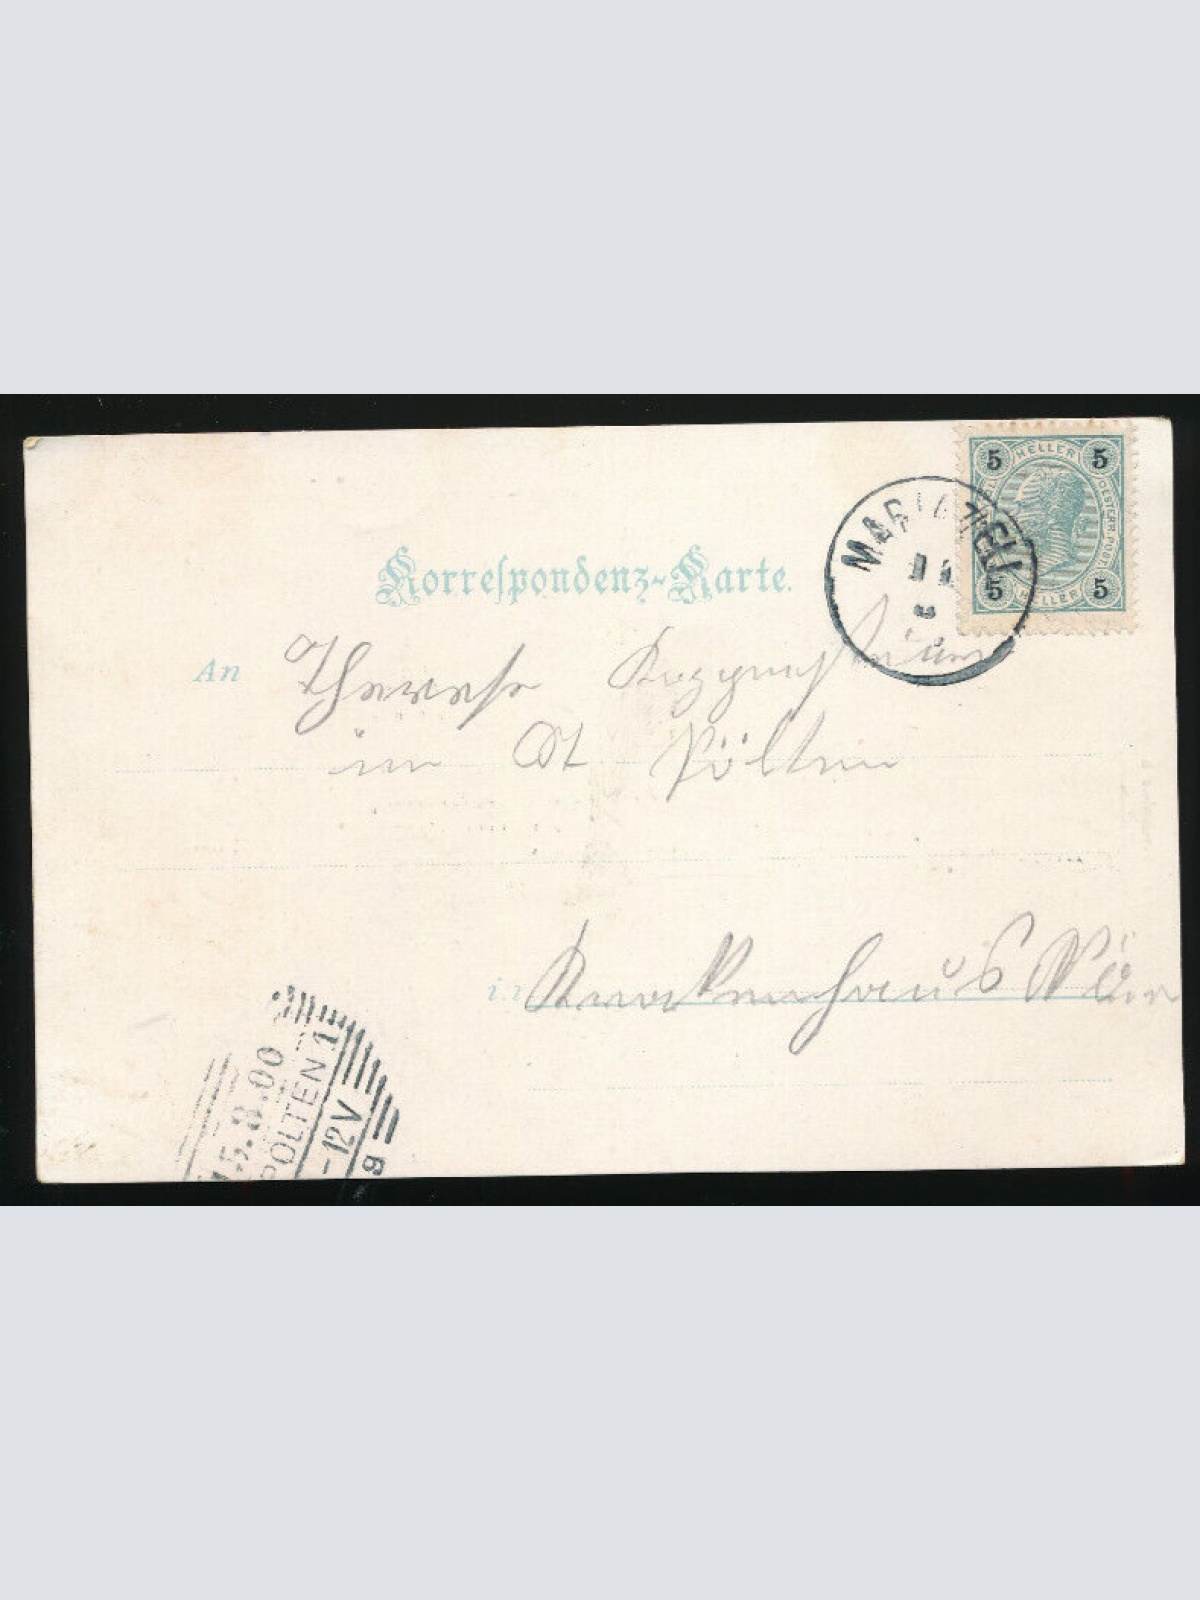 5 HELLER 5
OESTERR. POST
MARIAZELL
5 HELLER 5
Korrespondenz-Karte.
An Therese
in St Pölten
i.n Krankenhaus
15.8.00
PÖLTEN 1
-12V
9